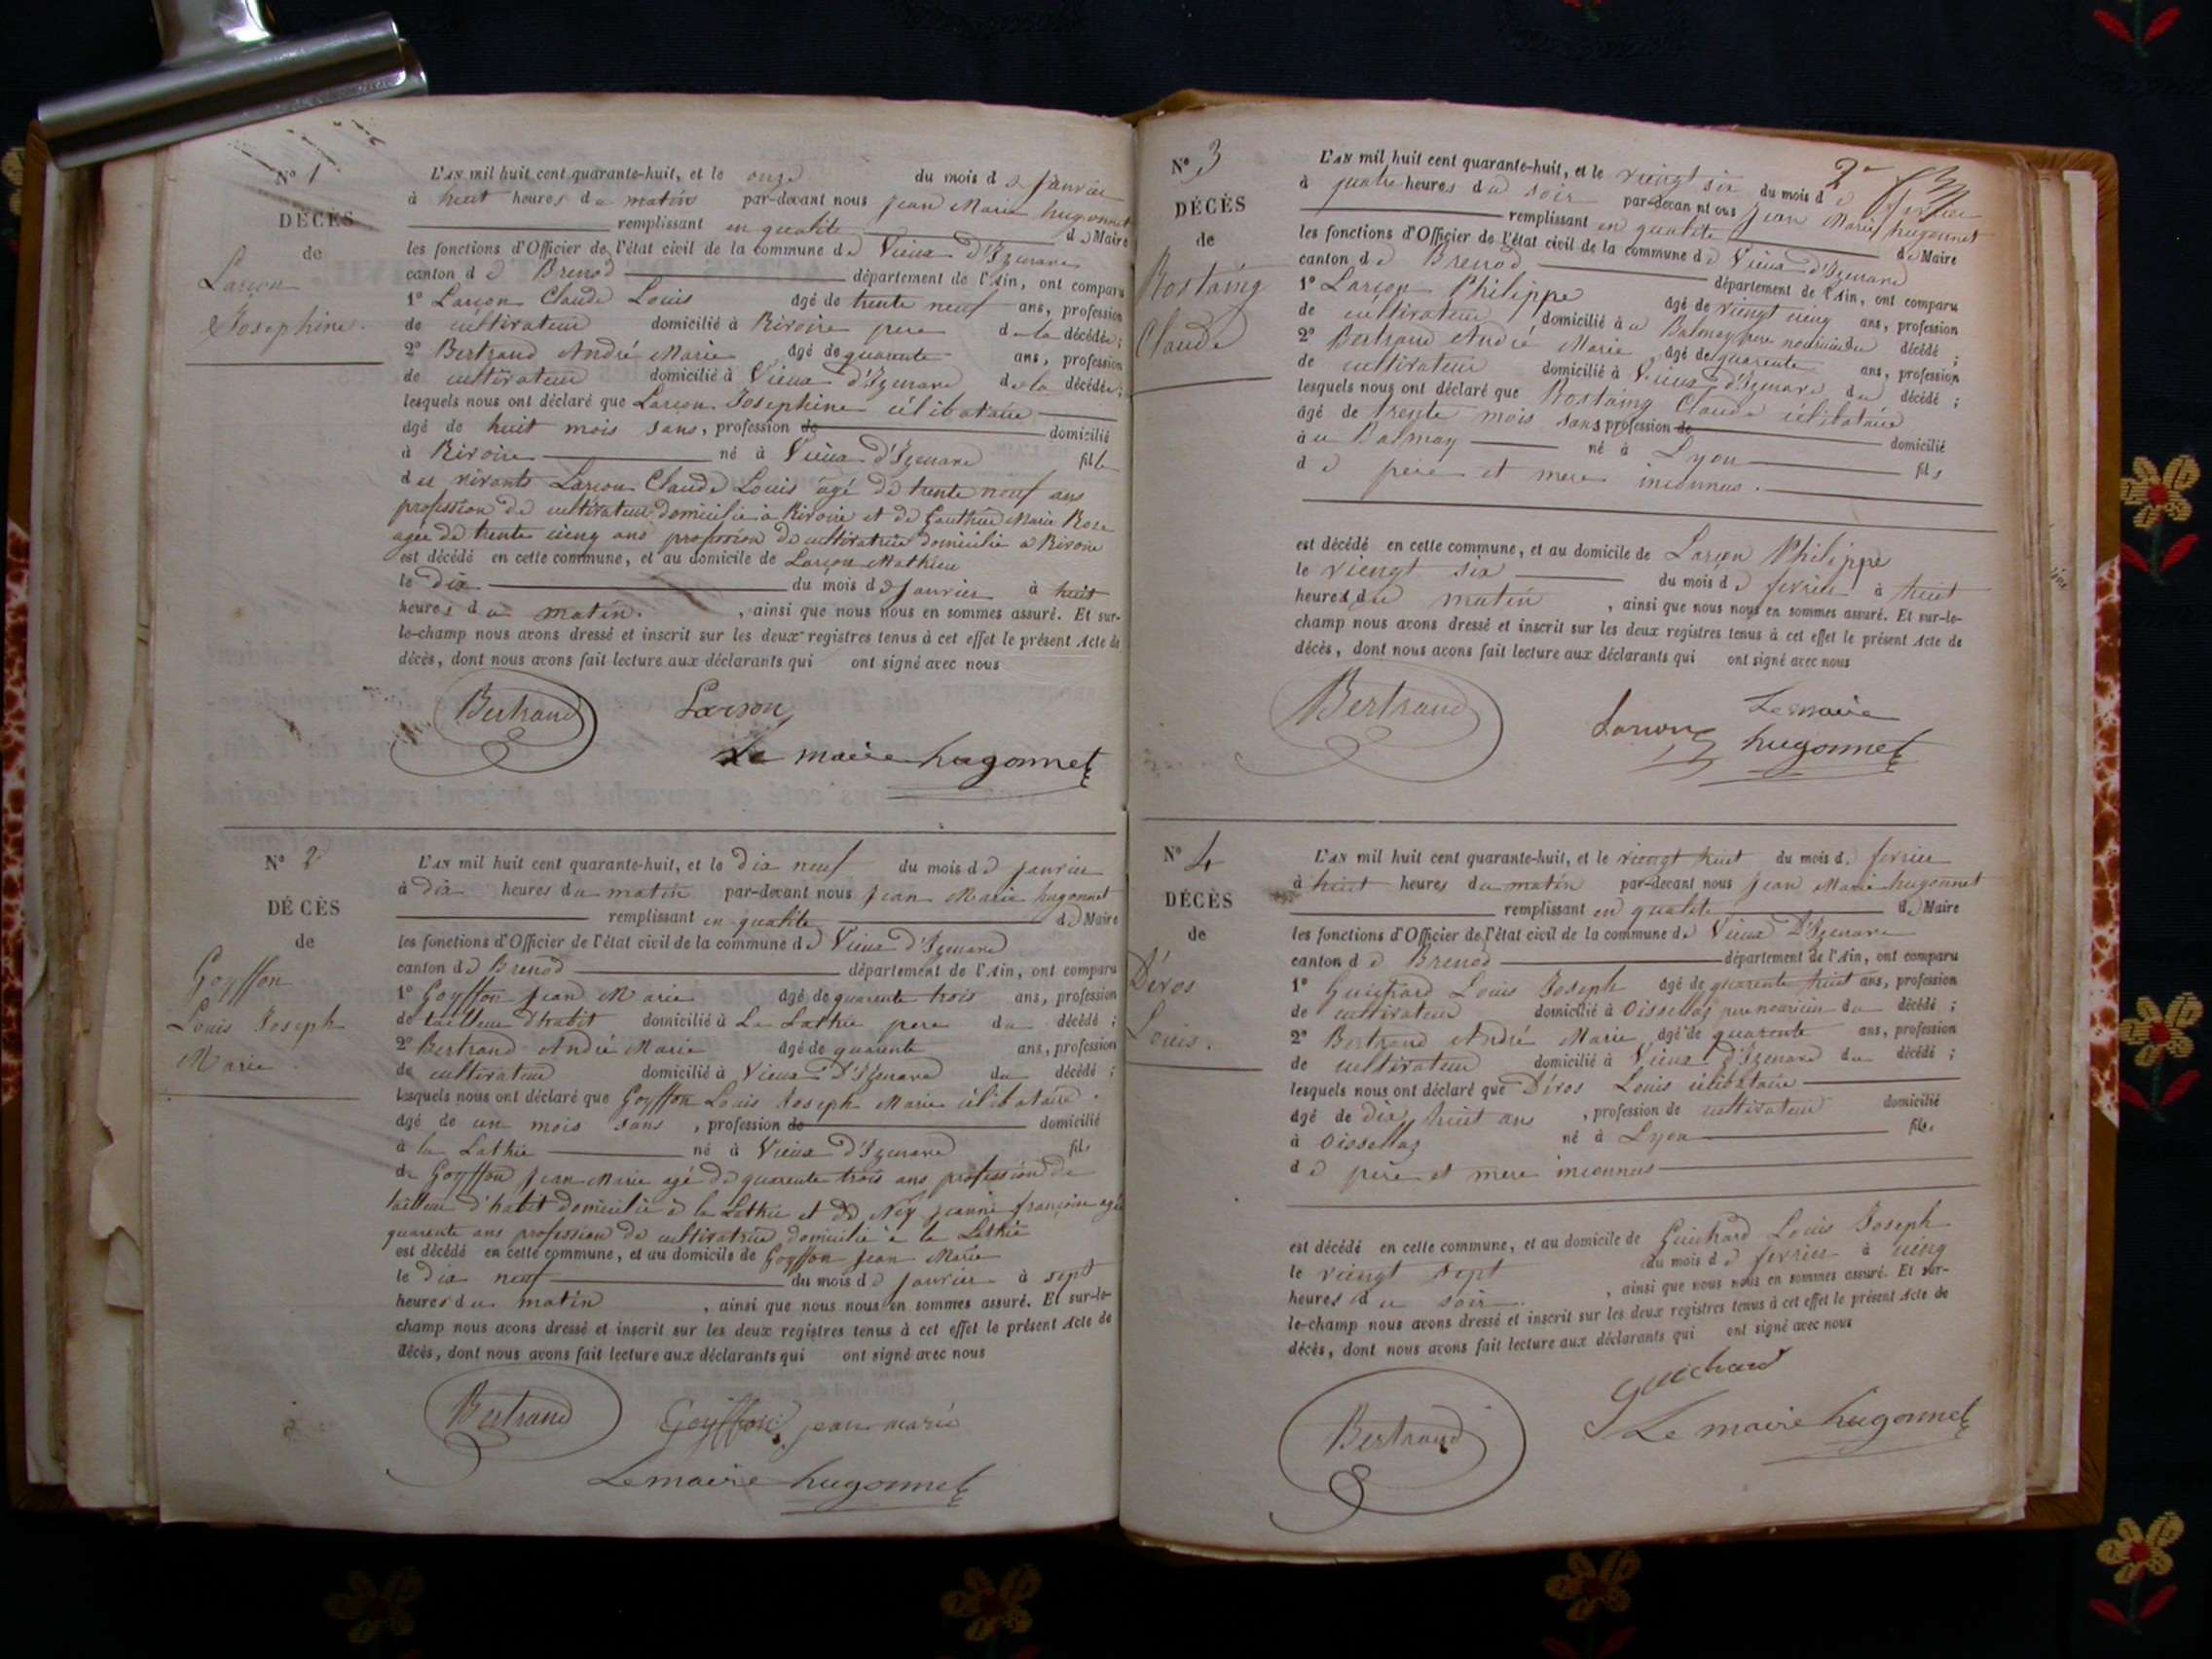 N° 1
DÉCÈS
de
Larçon
Josephine.
L'AN mil huit cent quarante-huit, et le onze du mois de janvier
à huit heures du matin par-devant nous jean Marie hugonnet
remplissant en qualité de Maire
les fonctions d'Officier de l'état civil de la commune de Vieux D'Izenave
canton de Brenod département de l'Ain, ont comparu
1° Larçon Claude Louis âgé de trente neuf ans, profession
de cultivateur domicilié à Rivoire pere de la décédée;
2° Bertrand André Marie âgé de quarente ans, profession
de cultivateur domicilié à Vieux d'Izenave de la décédée;
lesquels nous ont déclaré que Larçon Josephine célibataire
âgé de huit mois sans, profession de domicilié
à Rivoire né à Vieux d'Izenave fille
des vivants Larçon Claude Louis agé de trente neuf ans
profession de cultivateur domicilié à Rivoire et de Gauthier Marie Rose
agée de trente cinq ans profession de cultivatrice domicilié à Rivoire
est décédé en cette commune, et au domicile de Larçon Mathieu
le dix du mois de janvier à huit
heures du matin. , ainsi que nous nous en sommes assuré. Et sur-
le-champ nous avons dressé et inscrit sur les deux registres tenus à cet effet le présent Acte de
décès, dont nous avons fait lecture aux déclarants qui ont signé avec nous
Bertrand Larson
Le maire hugonnet
N° 2
DÉCÈS
de
Goyffon
Louis Joseph
Marie.
L'AN mil huit cent quarante-huit, et le dix neuf du mois de janvier
à dix heures du matin par-devant nous jean Marie hugonnet
remplissant en qualité de Maire
les fonctions d'Officier de l'état civil de la commune de Vieux d'Izenave
canton de Brenod département de l'Ain, ont comparu
1° Goyffon jean Marie âgé de quarente trois ans, profession
de tailleur d'habit domicilié à La Lathie pere du décédé;
2° Bertrand André Marie âgé de quarente ans, profession
de cultivateur domicilié à Vieux D'Izenave du décédé;
lesquels nous ont déclaré que Goyffon Louis Joseph Marie célibataire
âgé de un mois sans, profession de domicilié
à la Lathie né à Vieux D'Izenave fils
de Goyffon jean Marie agé de quarente trois ans profession de
tailleur d'habit domicilié à la Lathie et de Ney jeanne françoise agée
quarente ans profession de cultivatrice domicilié à la Lathie
est décédé en cette commune, et au domicile de Goyffon jean Marie
le dix neuf du mois de janvier à sept
heures du matin , ainsi que nous nous en sommes assuré. Et sur-le-
champ nous avons dressé et inscrit sur les deux registres tenus à cet effet le présent Acte de
décès, dont nous avons fait lecture aux déclarants qui ont signé avec nous
Bertrand Goyffon jean marie
Le maire hugonnet
2
N° 3
DÉCÈS
de
Rostaing
Claude
L'AN mil huit cent quarante-huit, et le viengt six du mois de fevrier
à quatre heures du soir par-devan nt ous jean Marie hugonnet
remplissant en qualité de Maire
les fonctions d'Officier de l'état civil de la commune de Vieux d'Izenave
canton de Brenod département de l'Ain, ont comparu
1° Larçon Philippe âgé de viengt cinq ans, profession
de cultivateur domicilié à u Balmay pere nouricier du décédé;
2° Bertrand André Marie âgé de quarente ans, profession
de cultivateur domicilié à Vieux d'Izenave du décédé;
lesquels nous ont déclaré que Rostaing Claude célibataire
âgé de trente mois sans profession de domicilié
à u Balmay né à Lyon fils
de père et mere inconnus.
est décédé en cette commune, et au domicile de Larçon Philippe
le viengt six du mois de fevrier à huit
heures du matin , ainsi que nous nous en sommes assuré. Et sur-le-
champ nous avons dressé et inscrit sur les deux registres tenus à cet effet le présent Acte de
décès, dont nous avons fait lecture aux déclarants qui ont signé avec nous
Bertrand Larson Le maire
hugonnet
N° 4
DÉCÈS
de
Déros
Louis.
L'AN mil huit cent quarante-huit, et le viengt huit du mois de fevrier
à huit heures du matin par-devant nous jean Marie hugonnet
remplissant en qualité de Maire
les fonctions d'Officier de l'état civil de la commune de Vieux D'Izenave
canton de Brenod département de l'Ain, ont comparu
1° Guichard Louis Joseph âgé de quarente huit ans, profession
de cultivateur domicilié à Oisselaz pere nouricier du décédé;
2° Bertrand André Marie âgé de quarente ans, profession
de cultivateur domicilié à Vieux d'Izenave du décédé;
lesquels nous ont déclaré que Déros Louis célibataire
âgé de dix huit ans , profession de cultivateur domicilié
à Oisselaz né à Lyon fils
de père et mere inconnus
est décédé en cette commune, et au domicile de Guichard Louis Joseph
le viengt sept du mois de fevrier à cinq
heures du soir. , ainsi que nous nous en sommes assuré. Et sur-
le-champ nous avons dressé et inscrit sur les deux registres tenus à cet effet le présent Acte de
décès, dont nous avons fait lecture aux déclarants qui ont signé avec nous
Bertrand guichard
Le maire hugonnet